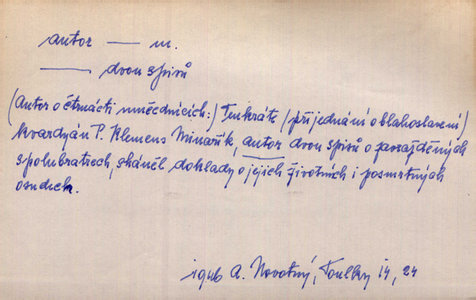 autor — m.
— dvou spisů
(autor o čtrnácti mučednících:) Tenkráte (při jednání o blahoslavení)
kvardyán P. Klemens Minařík, autor dvou spisů o povražděných
spolubratřech, sháněl doklady o jejich životních i posmrtných
osudech.
A. Novotný, Toulky 14, 24